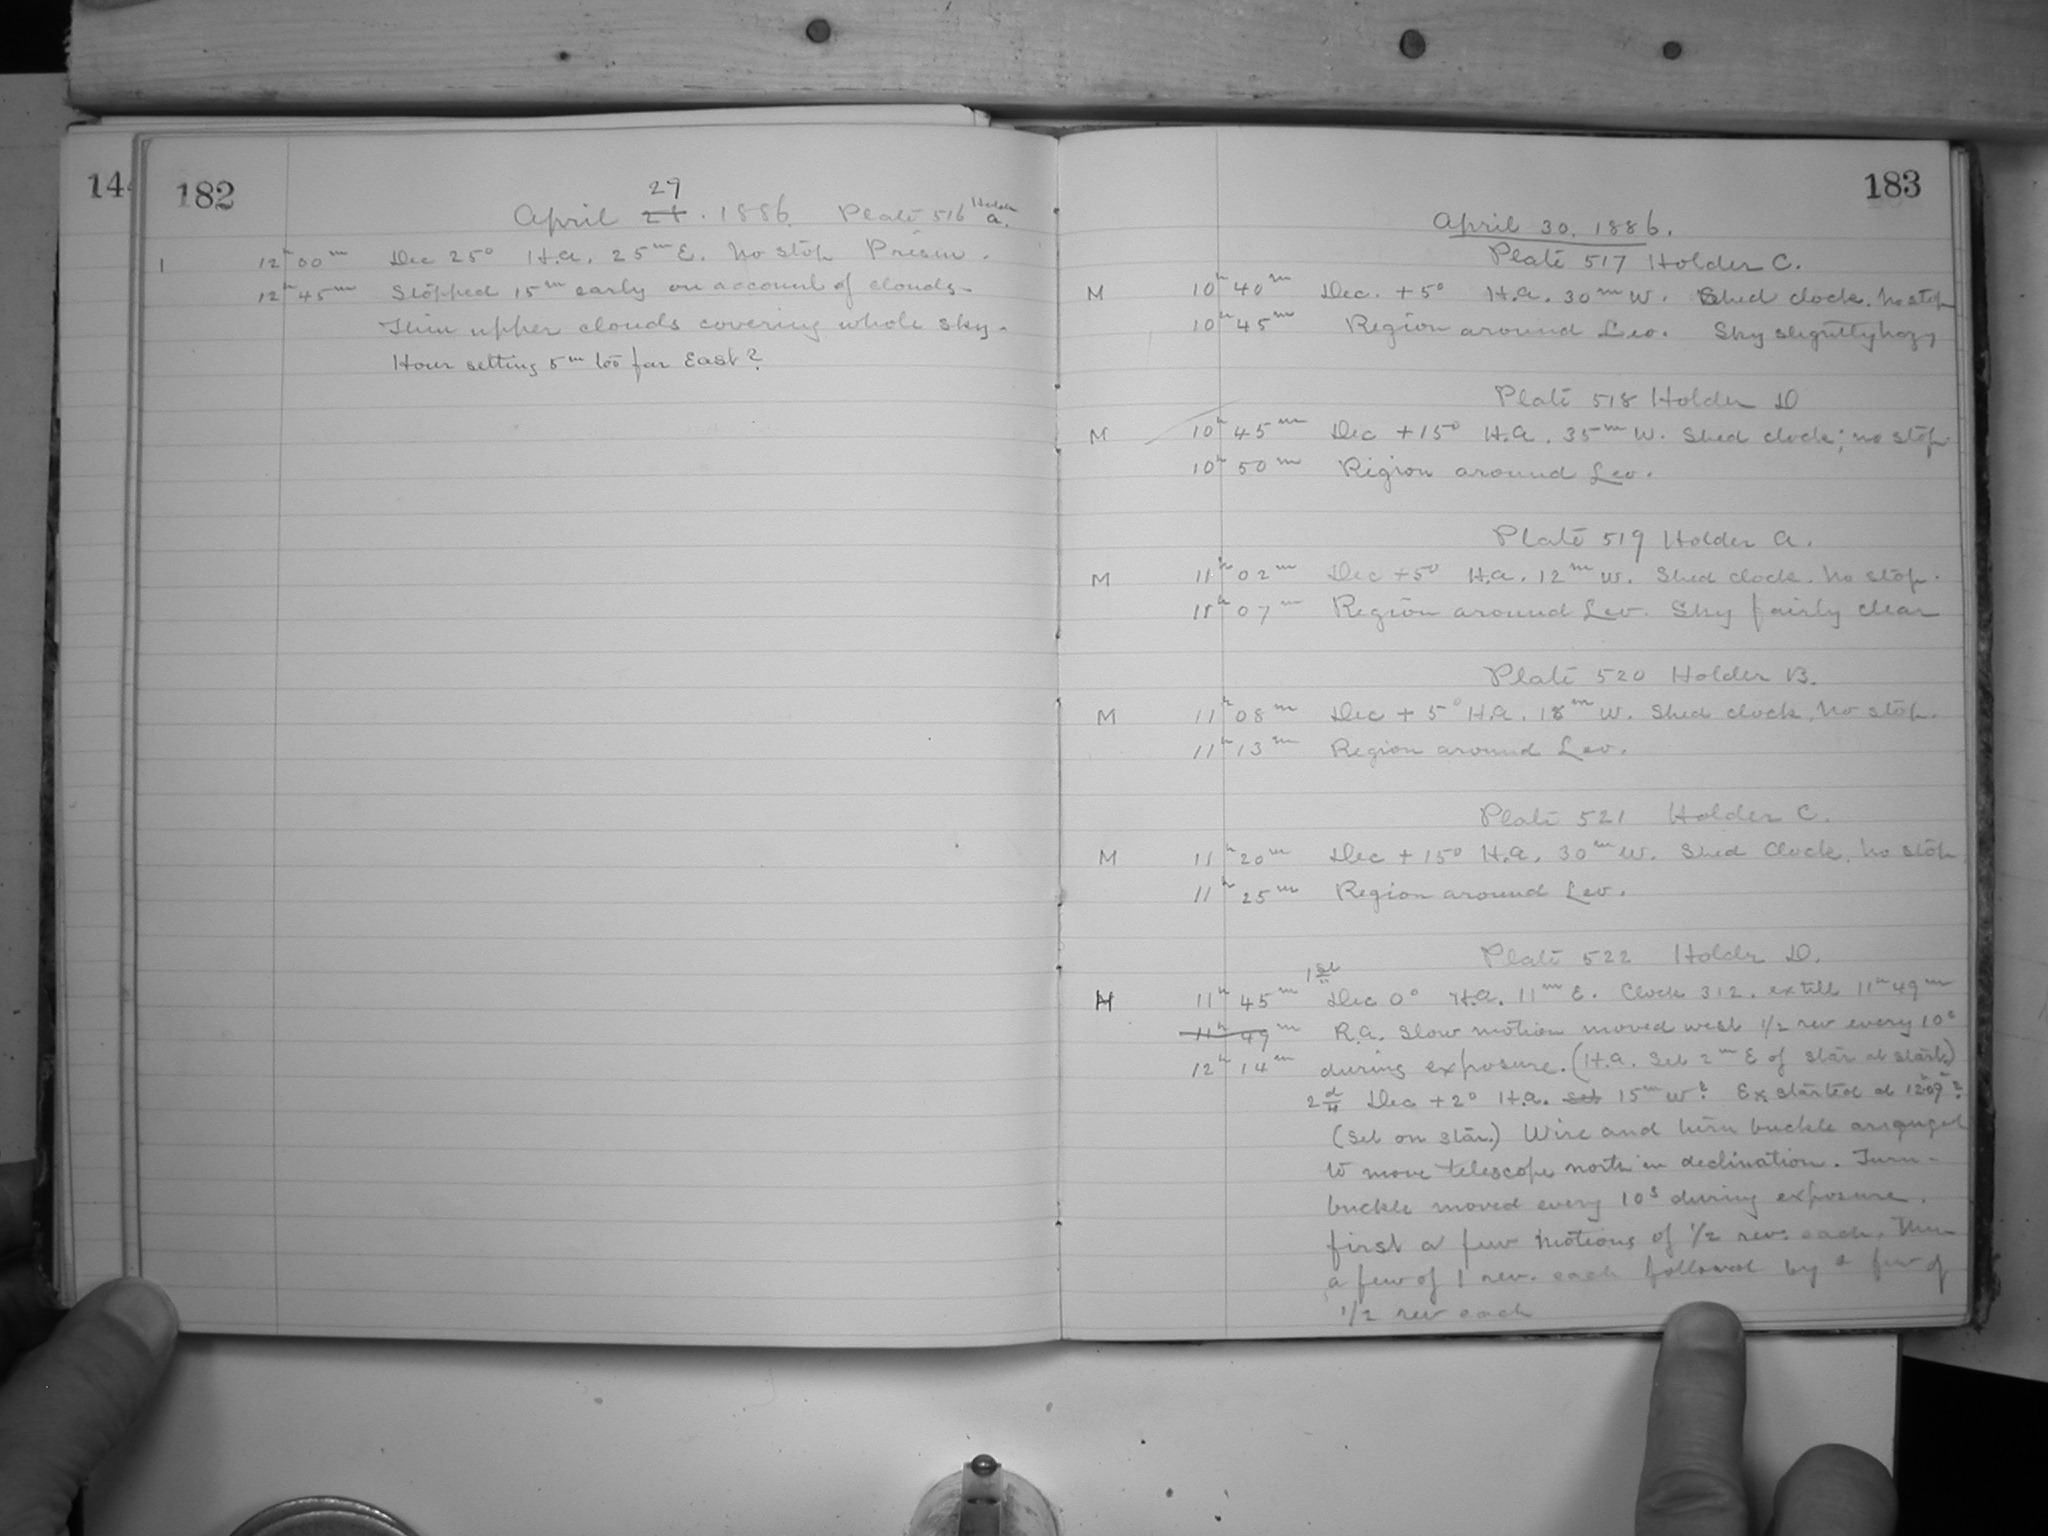 14
182
29
April 28. 1886. Plate 516 Holder a.
1 12h 00m Dec 25° H.a. 25m E. No stop Prism.
12h 45m Stopped 15m early on account of clouds.
Thin upper clouds covering whole sky.
Hour setting 5m too far East?
183
April 30. 1886.
Plate 517 Holder C.
M 10h 40m Dec. +5° H.a. 30m W. Shed clock. No stop
10h 45m Region around Leo. Sky slightly hazy
Plate 518 Holder D
M 10h 45m Dec +15° H.a. 35m W. Shed clock; no stop
10h 50m Region around Leo.
Plate 519 Holder a.
M 11h 02m Dec +5° H.a. 12m W. Shed clock. No stop.
11h 07m Region around Leo. Sky fairly clear
Plate 520 Holder B.
M 11h 08m Dec +5° H.a. 18m W. Shed clock. No stop.
11h 13m Region around Leo.
Plate 521 Holder C.
M 11h 20m Dec +15° H.a. 30m W. Shed Clock. No stop
11h 25m Region around Leo.
Plate 522 Holder D.
H 11h 45m 1st Dec 0° H.a. 11m E. Clock 312. ex till 11h 49m
11h 49m R.a. Slow motion moved west 1/2 rev every 10s
12h 14m during exposure. (H.a. Set 2m E of star at start)
2d Dec +2° H.a. set 15m W? Ex started at 12h 09m?
(Set on star.) Wire and turn buckle arranged
to move telescope north in declination. Turn-
buckle moved every 10s during exposure.
first a few motions of 1/2 rev. each, then
a few of 1 rev. each followed by a few of
1/2 rev each